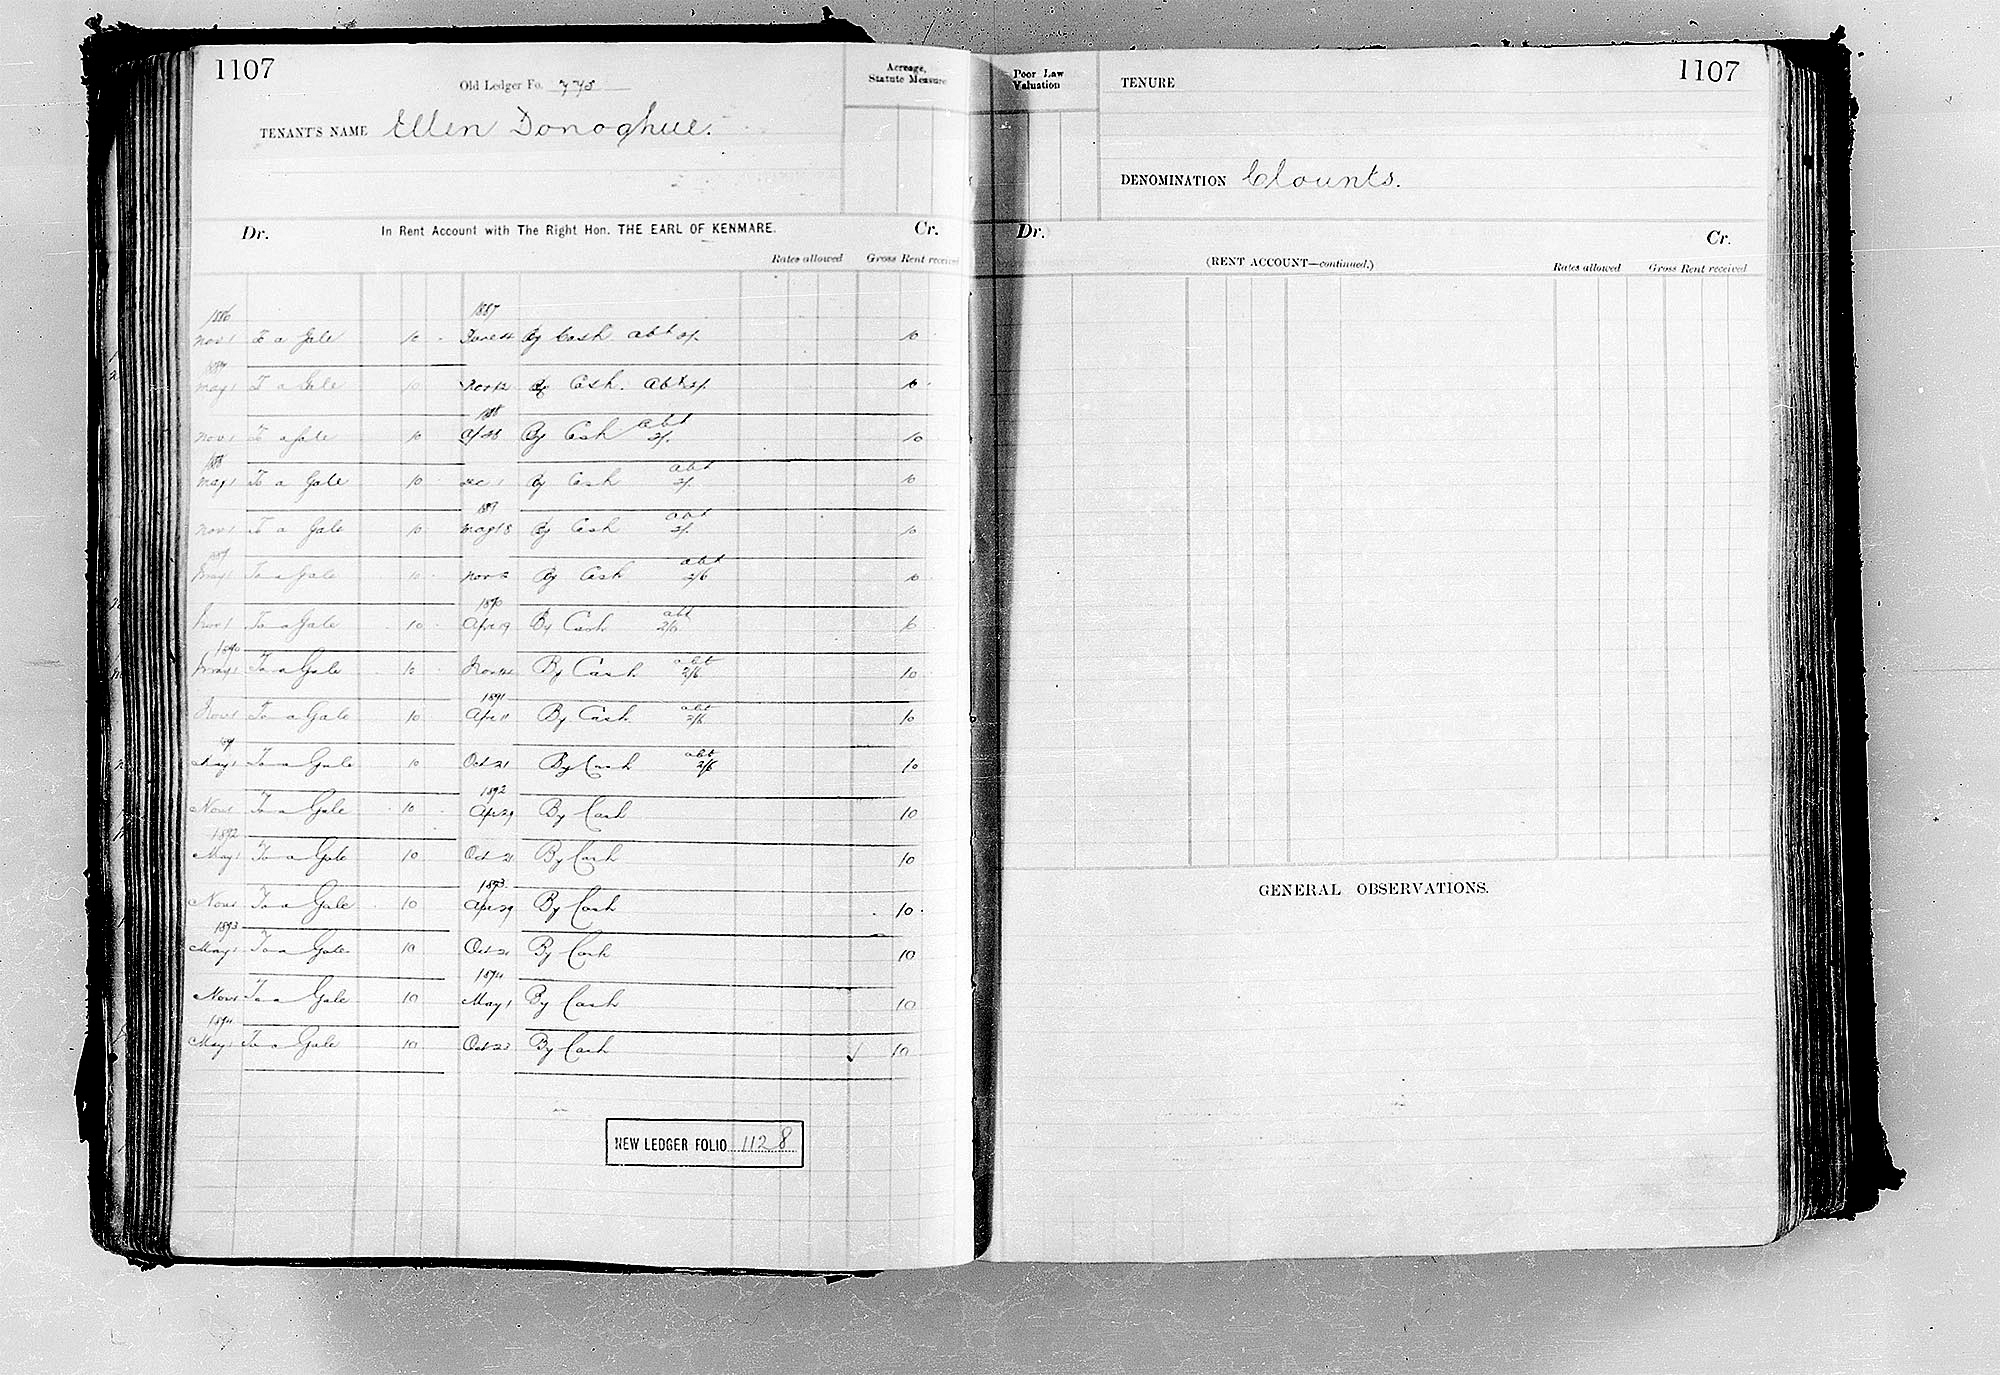 1107
Old Ledger Fo.
TENANT'S NAME Ellen Donoghue.
Acreage,
Statute Measure
Dr. In Rent Account with The Right Hon. THE EARL OF KENMARE. Cr.
Rates allowed Gross Rent received
1886 1887
Nov 1 To a Gale 10 By Cash abt 2/. 10
1887
May 1 To a Gale 10 Nov 12 By Cash. Abt 2/. 10
1888 abt
Nov 1 To a Gale 10 By Cash 2/. 10
1888 abt
May 1 To a Gale 10 Dec 1 By Cash 2/. 10
1889 abt
Nov 1 To a Gale 10 May 18 By Cash 2/. 10
1889 abt
May 1 To a Gale 10 Nov By Cash 2/6 10
1890 abt
Nov 1 To a Gale 10 Apr 19 By Cash 2/6 10
1890 abt
May 1 To a Gale 10 Nov By Cash 2/6 10
1891 abt
Nov 1 To a Gale 10 Apr 11 By Cash 2/6 10
91 abt
May 1 To a Gale 10 Oct 21 By Cash 2/6 10
1892
Nov 1 To a Gale 10 Apr 29 By Cash 10
1892
May 1 To a Gale 10 Oct 21 By Cash 10
1893
Nov 1 To a Gale 10 Apr 29 By Cash 10
1893
May 1 To a Gale 10 Oct 21 By Cash 10
1894
Nov 1 To a Gale 10 May 1 By Cash 10
1894
May 1 To a Gale 10 Oct 23 By Cash 10
NEW LEDGER FOLIO 1128
Poor Law
Valuation
TENURE
1107
DENOMINATION Clounts.
Dr. Cr.
(RENT ACCOUNT—continued.) Rates allowed Gross Rent received
GENERAL OBSERVATIONS.